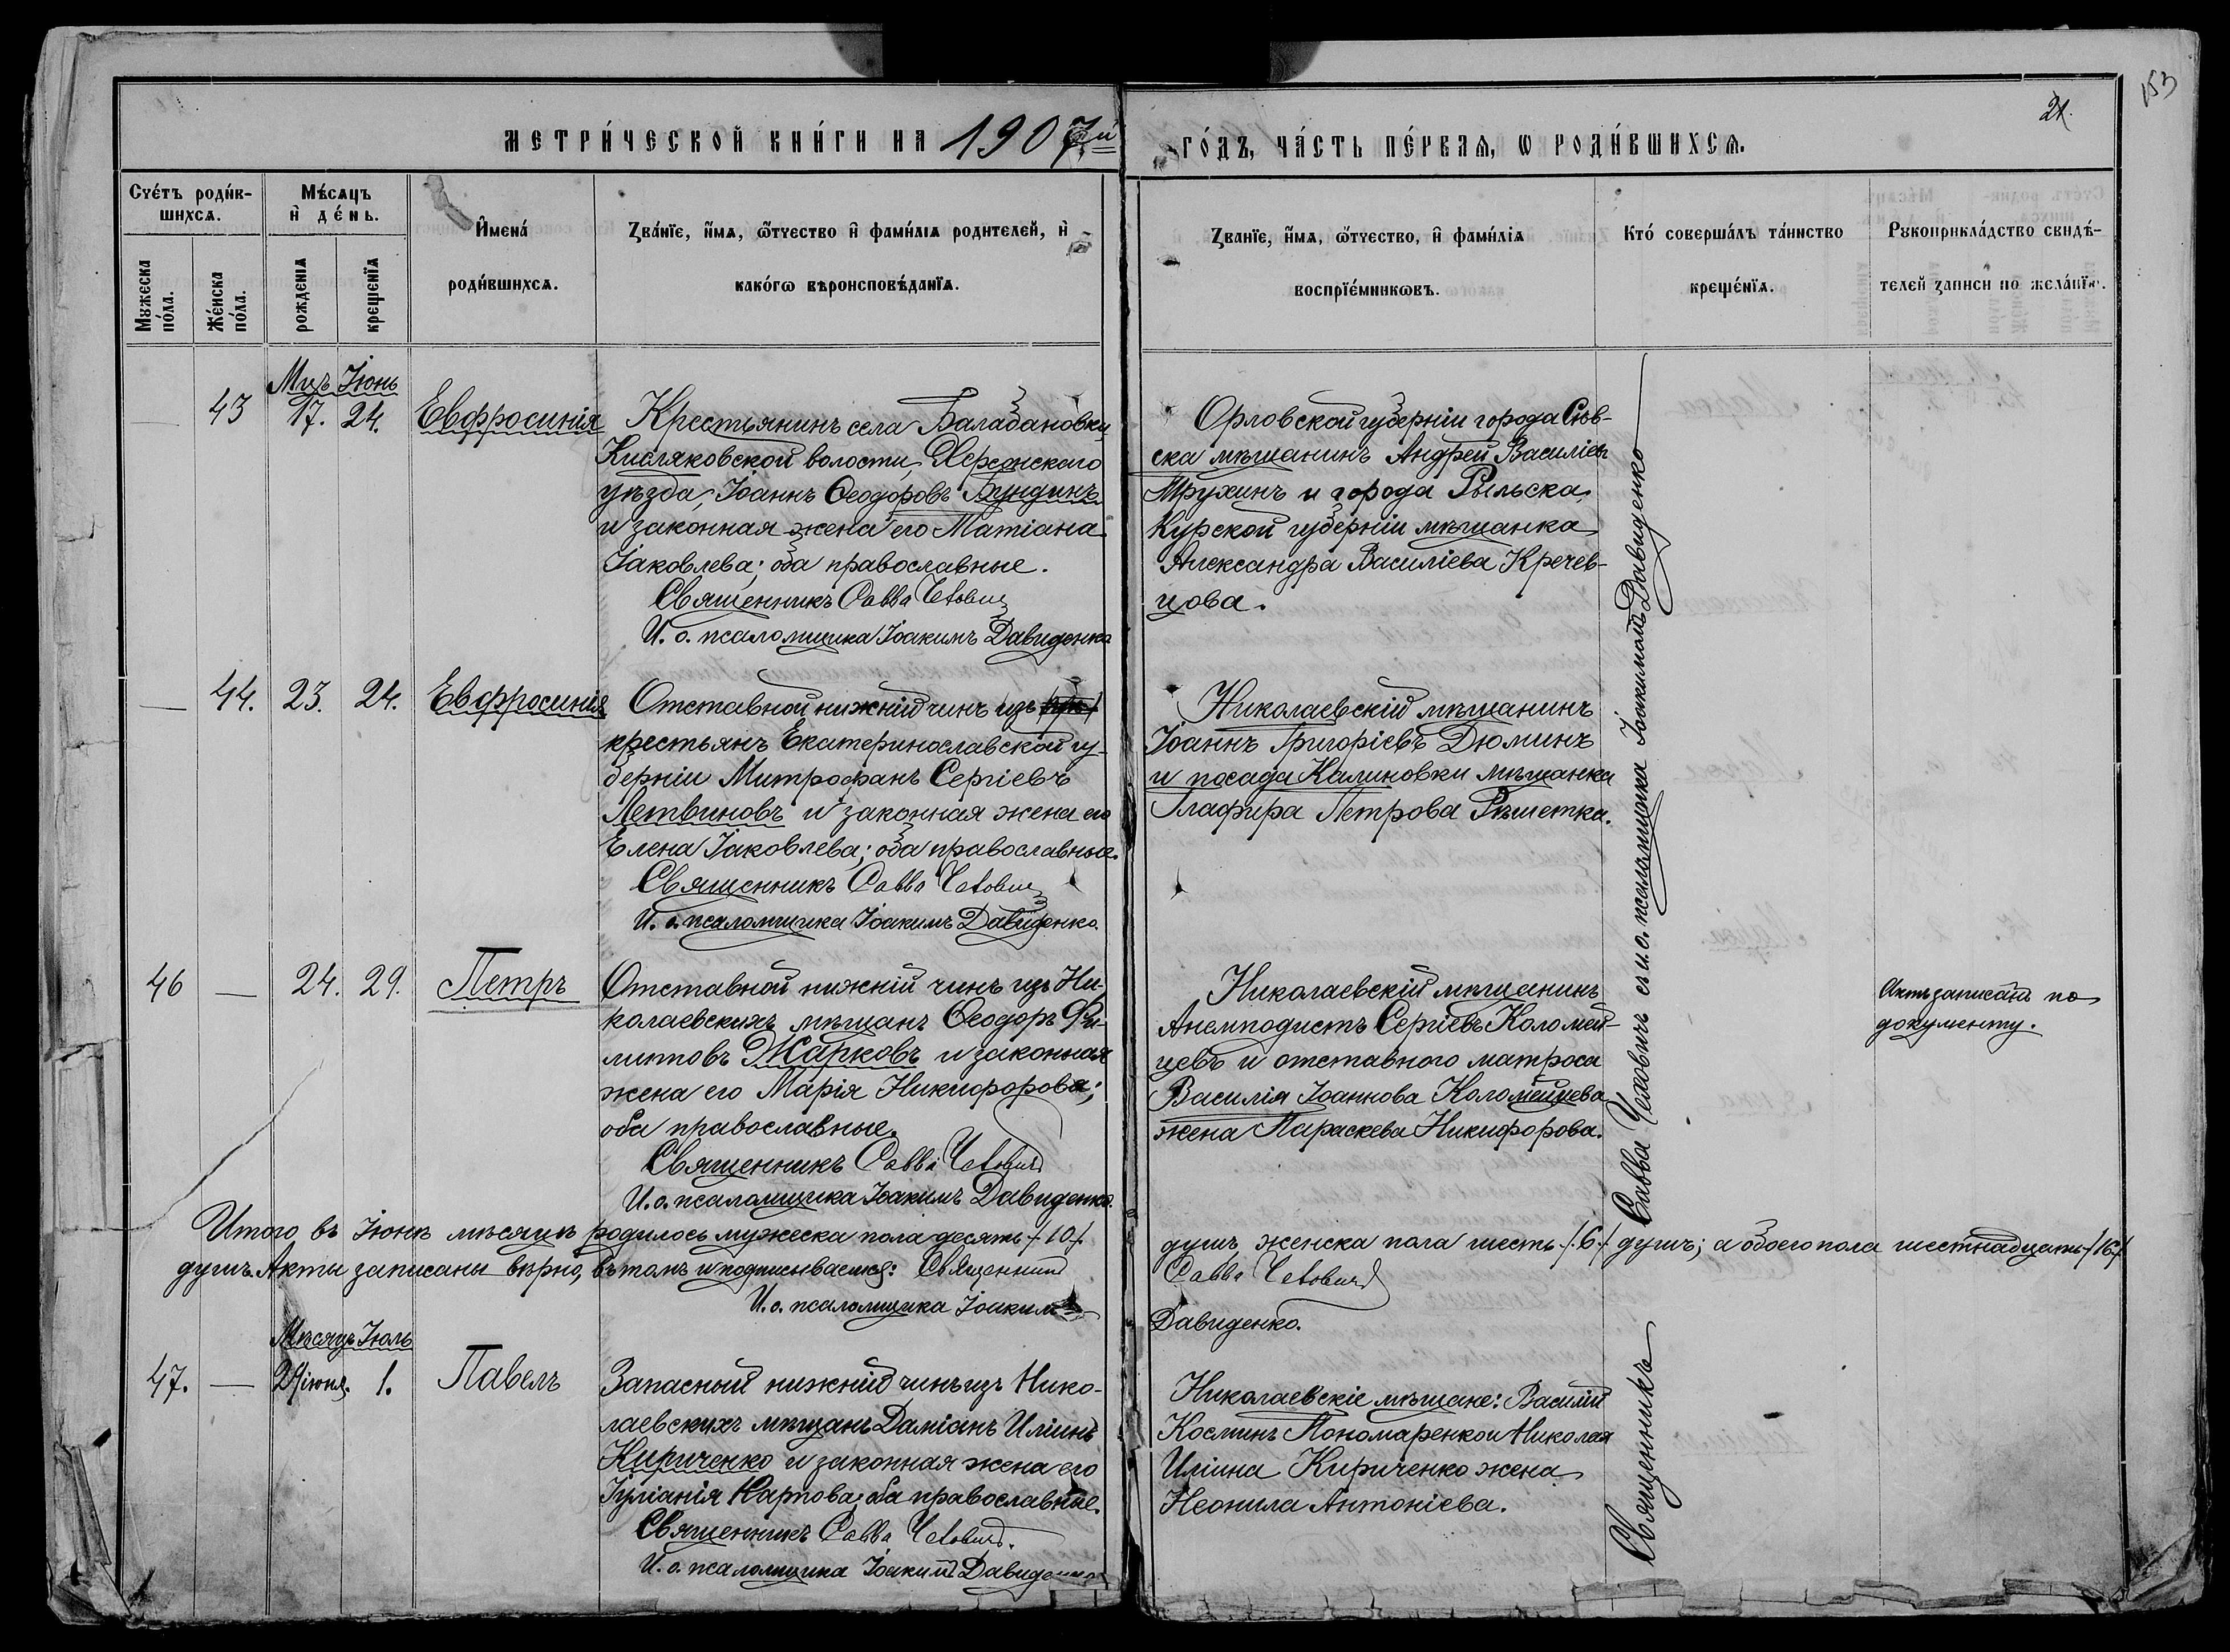 153
21.
МЕТРИ́ЧЕСКОЙ КНИ́ГИ НА 1907й
ГО́ДЪ, ЧА́СТЬ ПЕ́РВАЯ, Ѡ РОДИ́ВШИХСѦ.
Счетъ роди́в-
шихсѧ.
Мужеска по́ла.
Же́нска по́ла.
Мѣ́сѧцъ
и де́нь.
рожденїѧ
крещенїѧ
Имена́
роди́вшихсѧ.
Зва́нїе, имѧ, ѻтчество и фами́лїѧ родителей, и
како́гѡ вѣроисповѣ́данїѧ.
Званїе, имѧ, ѻтчество, и фами́лїѧ
воспрїе́мникѡвъ.
Кто́ соверша́лъ та́инство
креще́нїѧ.
Рукоприкла́дство свидѣ́-
телей записи по жела́нїю.
Мцъ Іюнь
— 43 17. 24. Евфросинія
Крестьянинъ села Балабановки,
Кисляковской волости, Херсонскаго
уѣзда, Іоаннъ Ѳеодоровъ Бундинъ
и законная жена его Татіана
Іаковлева; оба православные.
Священникъ Савва Чехович
И. о. псаломщика Іоакимъ Давиденко
Орловской губерніи города Сѣв-
ска мѣщанинъ Андрей Василіев
Трухинъ и города Рыльска
Курской губерніи мѣщанка
Александра Василіева Кречев-
цова.
— 44. 23. 24. Евфросинія
Отставной нижній чинъ изъ
крестьянъ Екатеринославской гу-
берніи Митрофанъ Сергіевъ
Летвиновъ и законная жена его
Елена Іаковлева; оба православные.
Священникъ Савва Чехович
И. о. псаломщика Іоакимъ Давиденко.
Николаевскій мѣщанинъ
Іоаннъ Григоріевъ Дюминъ
и посада Калиновки мѣщанка
Глафира Петрова Рѣшетка.
46 — 24. 29. Петръ
Отставной нижній чинъ изъ Ни-
колаевскихъ мѣщанъ Ѳеодоръ Фи-
липповъ Жарковъ и законная
жена его Марія Никифорова;
оба православные.
Священникъ Савва Чехович
И. о. псаломщика Іоакимъ Давиденко.
Николаевскій мѣщанинъ
Анемподистъ Сергіевъ Коломей-
цевъ и отставного матроса
Василія Іоаннова Коломейцева
жена Параскева Никифорова.
Актъ записанъ по
документу.
Итого въ Іюнѣ мѣсяцѣ родилось мужеска пола десять /10/.
душъ, женска пола шесть /6/ душъ; а обоего пола шестнадцать /16/
душъ. Акты записаны вѣрно, въ томъ и подписываемся: Священник
Савва Чехович
И. о. псаломщика Іоакимъ
Давиденко.
Мѣсяцъ Іюль
47. — 29 іюня. 1. Павелъ
Запасный нижній чинъ изъ Нико-
лаевскихъ мѣщанъ Даміанъ Иліинъ
Кириченко и законная жена его
Іуліанія Карпова; оба православные.
Священникъ Савва Чехович.
И. о. псаломщика Іоаким Давиденко
Николаевскіе мѣщане: Василій
Косминъ Пономаренко и Николая
Иліина Кириченко жена
Неонила Антоніева.
Священникъ Савва Чеховичъ съ и. о. псаломщика Іоакимомъ Давиденко